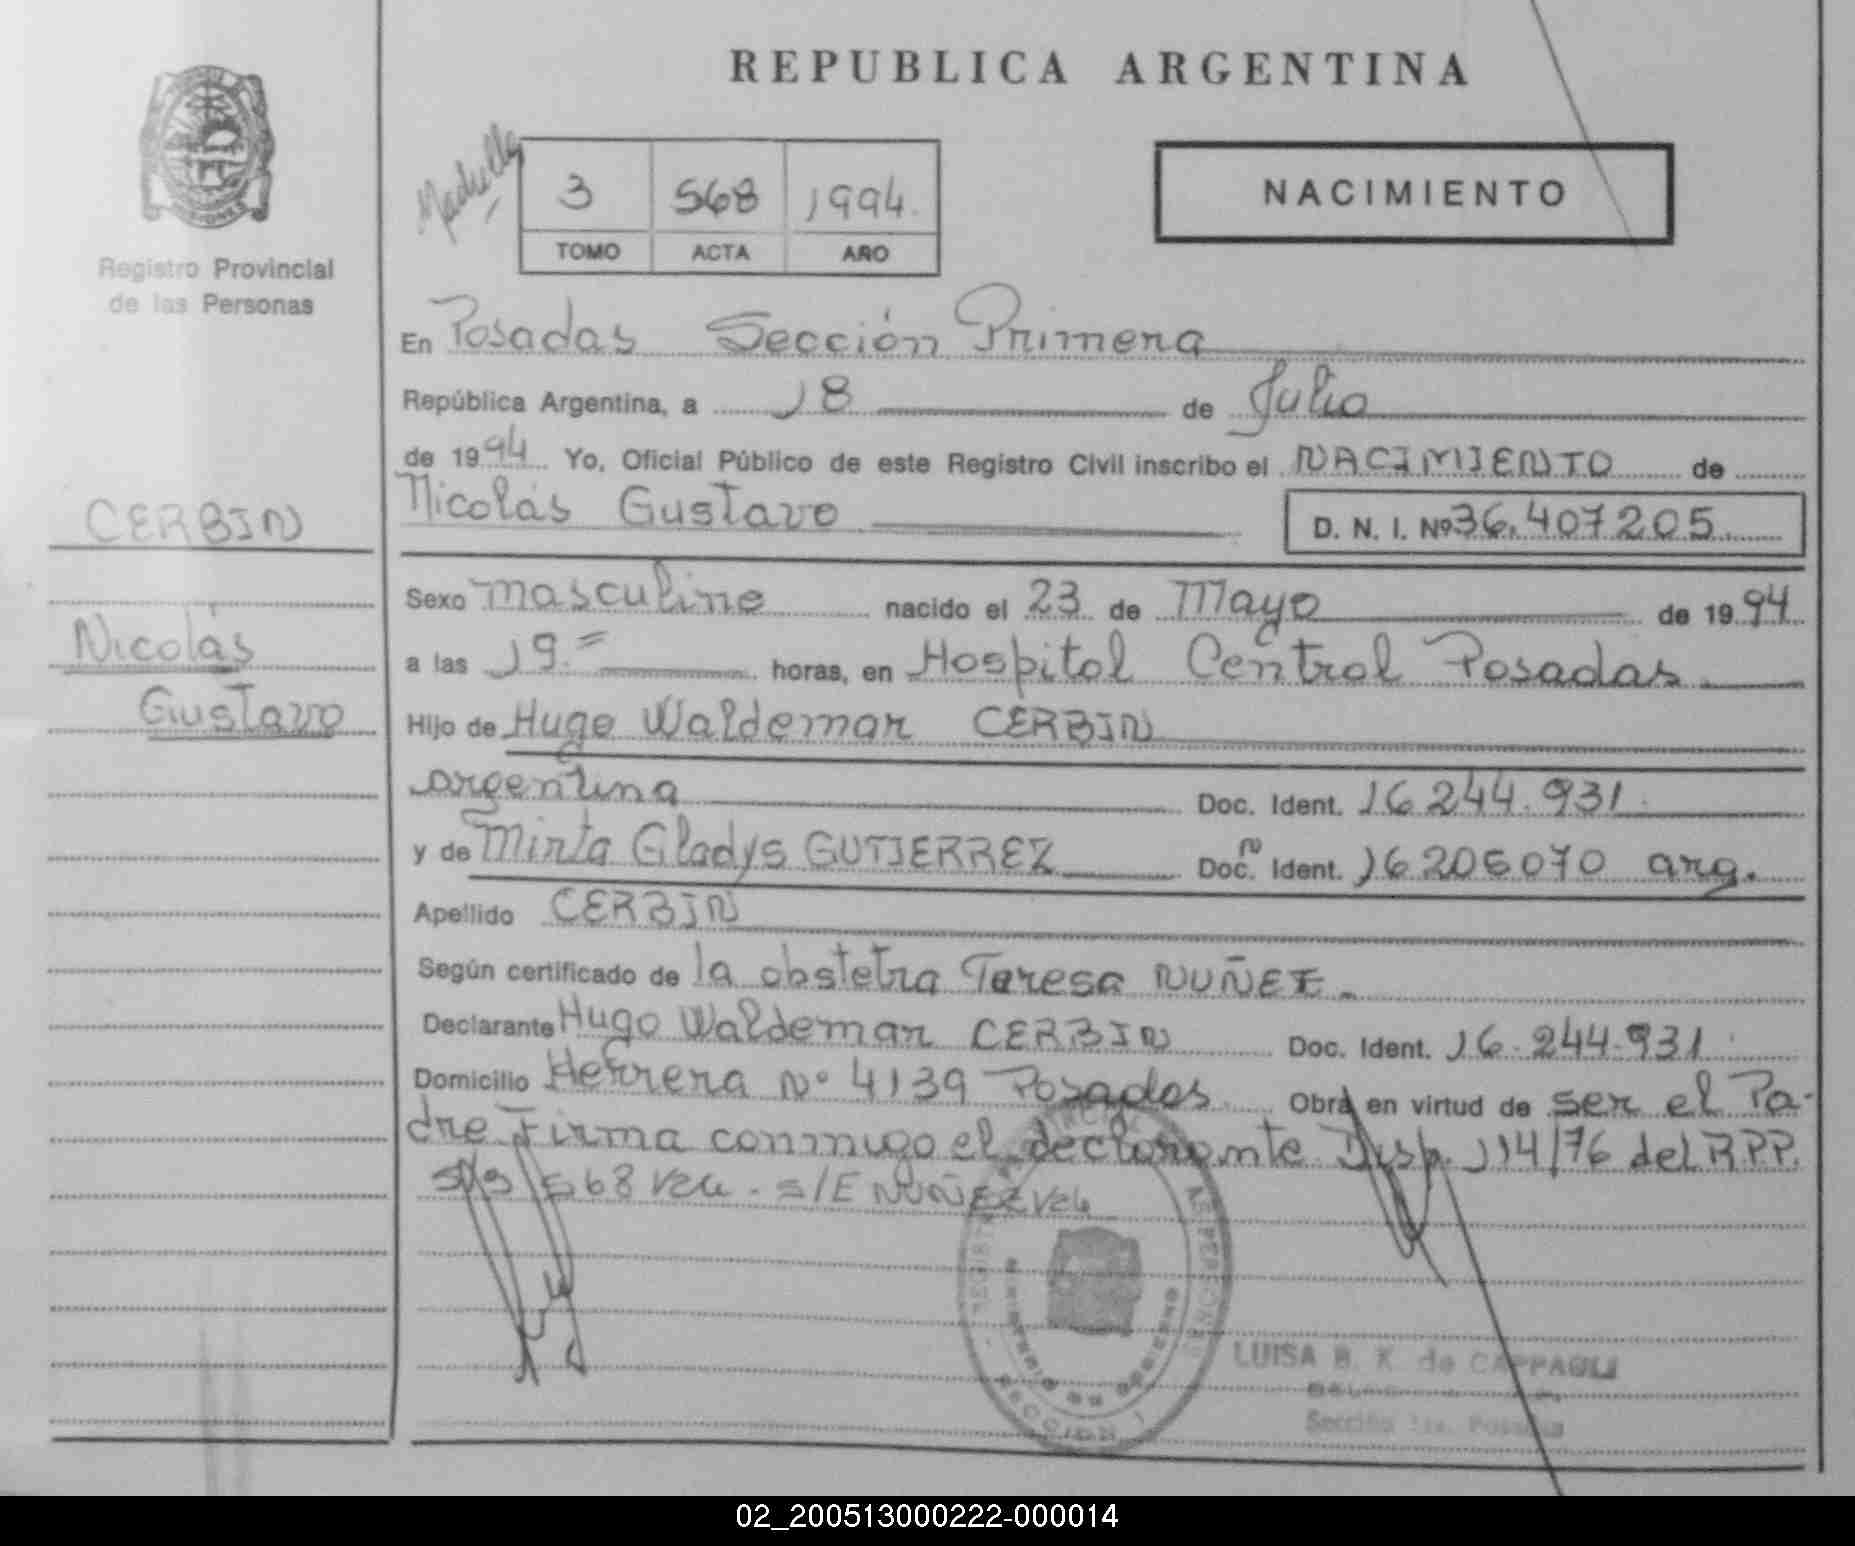 REPUBLICA ARGENTINA
Registro Provincial
de las Personas
3 568 1994
TOMO ACTA AÑO
NACIMIENTO
En Posadas Sección Primera
República Argentina, a 18 de Julio
de 1994 Yo, Oficial Público de este Registro Civil inscribo el NACIMIENTO de
Nicolás Gustavo D. N. I. Nº 36.407205
CERBIN
Nicolás
Gustavo
Sexo masculino nacido el 23 de Mayo de 1994
a las 19.= horas, en Hospital Central Posadas
Hijo de Hugo Waldemar CERBIN
argentina Doc. Ident. 16.244.931
y de Mirta Gladys GUTIERREZ Doc. Ident. 16206070 arg.
Apellido CERBIN
Según certificado de la obstetra Teresa NUÑEZ.
Declarante Hugo Waldemar CERBIN Doc. Ident. 16.244.931
Domicilio Herrera Nº 4139 Posadas Obra en virtud de ser el Pa-
dre. Firma conmigo el declarante Disp. 114/76 del R.P.P.
568 Vale. s/E NUÑEZ Vale
SECCION 1
LUISA B. K. de CAPPAGLI
Sección 1ra. Posadas
02_200513000222-000014